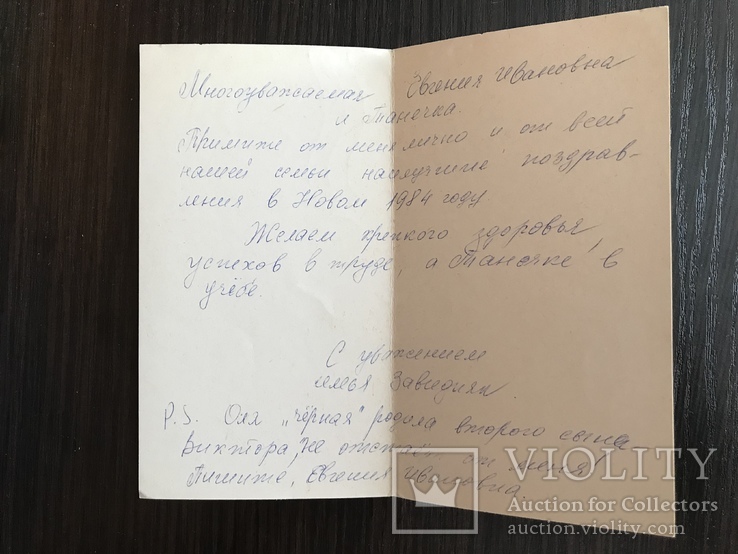 Многоуважаемая Евгения Ивановна
и Танечка.
Примите от меня лично и от всей
нашей семьи наилучшие поздрав-
ления в Новом 1984 году.
Желаем крепкого здоровья,
успехов в труде, а Танечке в
учёбе.
С уважением
семья
P.S. Оля „чёрная" родила второго сына
Виктора, „не отстал" от меня!
Пишите, Евгения Ивановна.
VIOLITY
Auction for Collectors
auction.violity.com